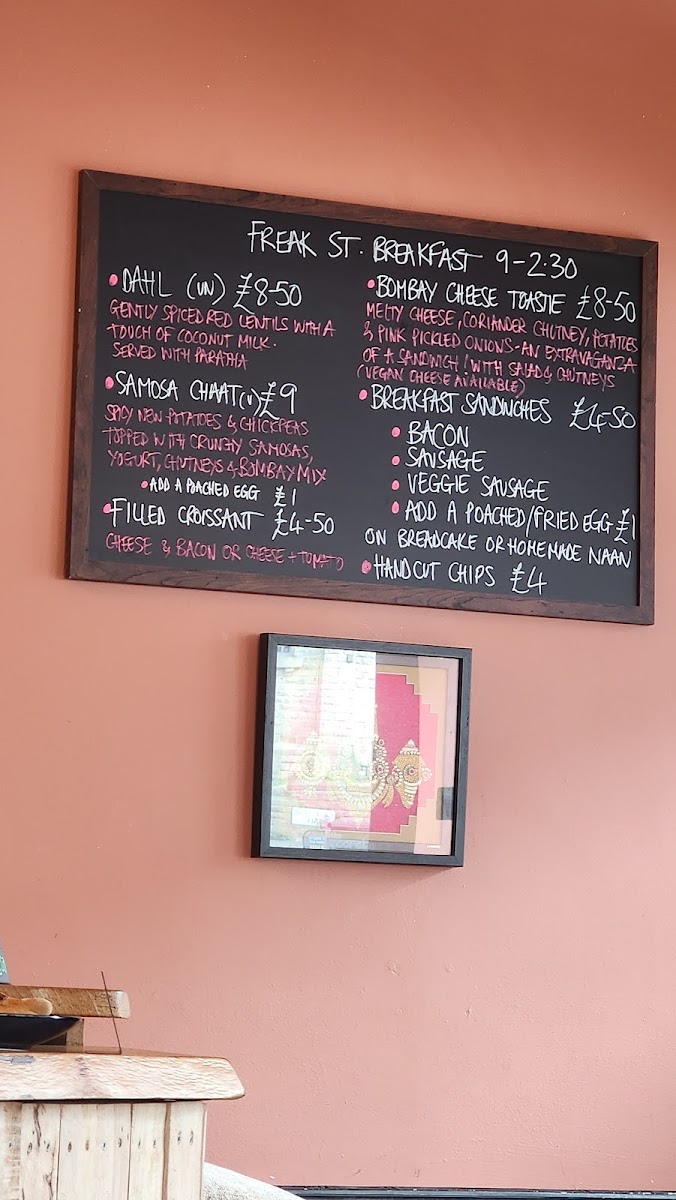 FREAK ST. BREAKFAST 9-2:30
• DAHL (VN) £8-50
GENTLY SPICED RED LENTILS WITH A
TOUCH OF COCONUT MILK.
SERVED WITH PARATHA
• SAMOSA CHAAT (V) £9
SPICY NEW POTATOES & CHICKPEAS
TOPPED WITH CRUNCHY SAMOSAS,
YOGURT, CHUTNEYS & BOMBAY MIX
• ADD A POACHED EGG £1
• FILLED CROISSANT £4-50
CHEESE & BACON OR CHEESE + TOMATO
• BOMBAY CHEESE TOASTIE £8-50
MELTY CHEESE, CORIANDER CHUTNEY, POTATOES
& PINK PICKLED ONIONS-AN EXTRAVAGANZA
OF A SANDWICH! WITH SALAD & CHUTNEYS
(VEGAN CHEESE AVAILABLE)
• BREAKFAST SANDWICHES £4-50
• BACON
• SAUSAGE
• VEGGIE SAUSAGE
• ADD A POACHED/FRIED EGG £1
ON BREADCAKE OR HOMEMADE NAAN
• HANDCUT CHIPS £4